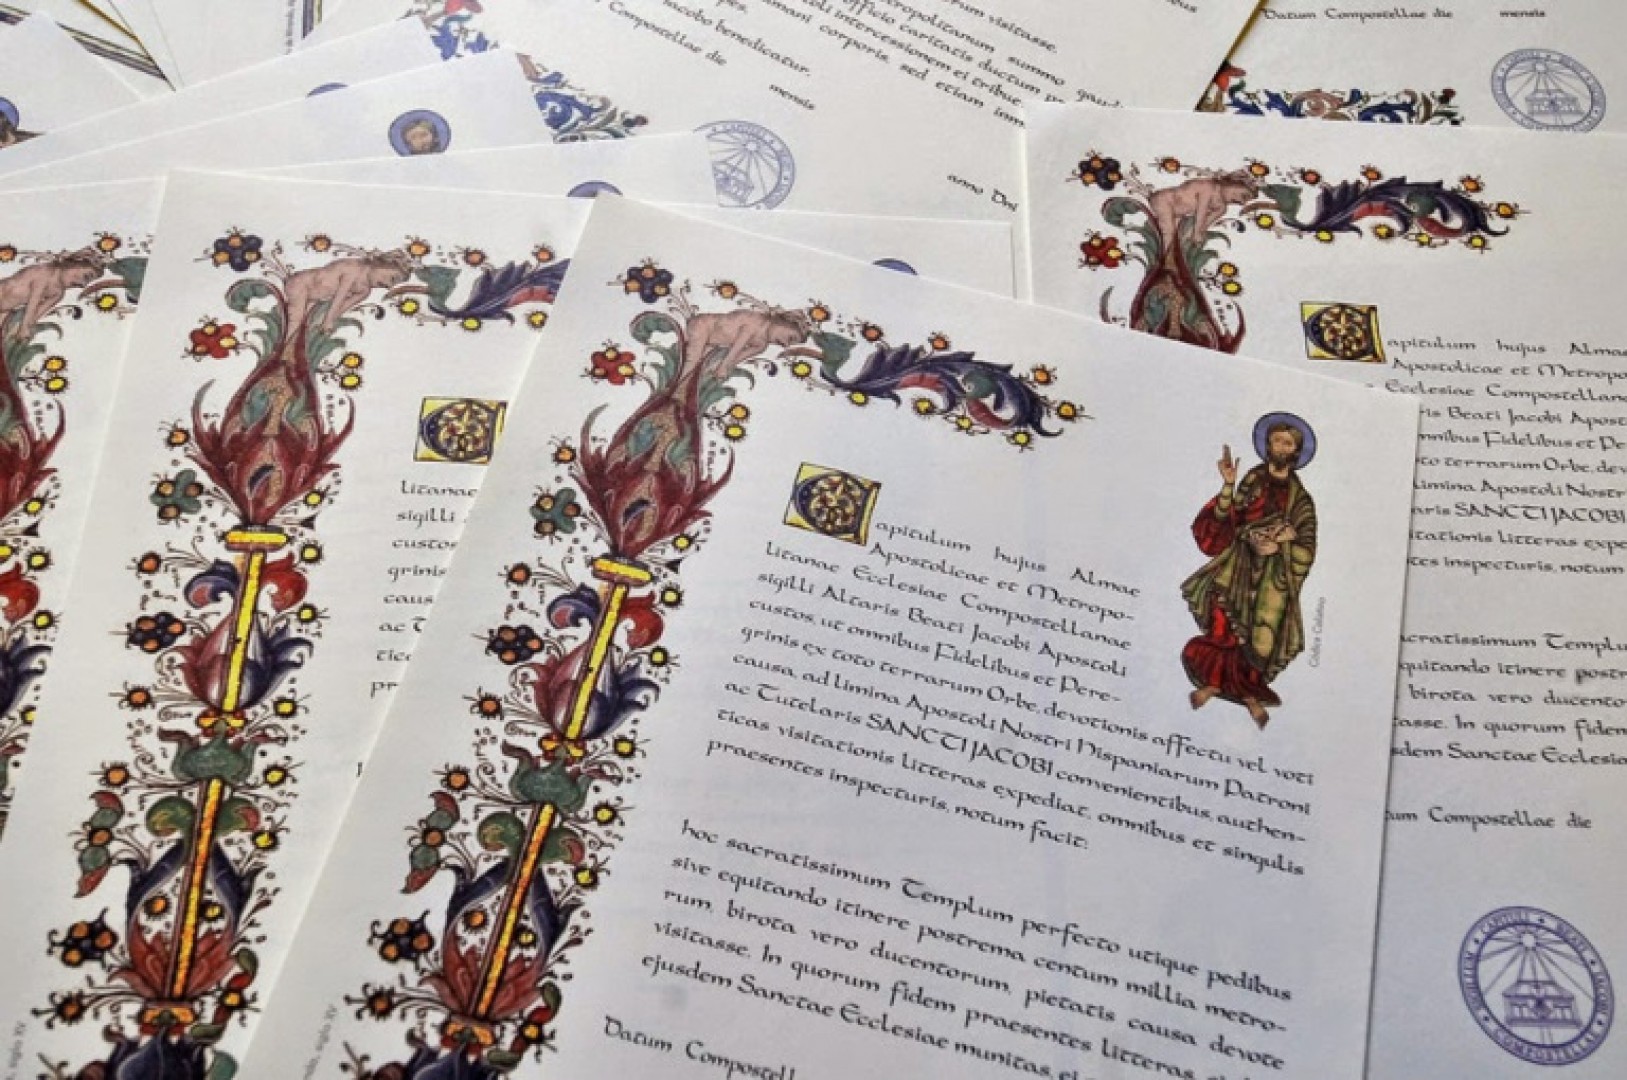 apitulum hujus Almae
Apostolicae et Metropo-
litanae Ecclesiae Compostellanae
sigilli Altaris Beati Jacobi Apostoli
custos, ut omnibus Fidelibus et Pere-
grinis ex toto terrarum Orbe, devotionis affectu vel voti
causa, ad limina Apostoli Nostri Hispaniarum Patroni
ac Tutelaris SANCTI JACOBI convenientibus, authen-
ticas visitationis litteras expediat, omnibus et singulis
praesentes inspecturis, notum facit:
hoc sacratissimum Templum perfecto utique pedibus
sive equitando itinere postrema centum millia metro-
rum, birota vero ducentorum, pietatis causa devote
visitasse. In quorum fidem praesentes litteras,
ejusdem Sanctae Ecclesiae munitas, ei
Datum Compostell
Codex Calixtinus
apitulum hujus Almae
Apostolicae et Metropo
Ecclesiae Compostellana
ris Beati Jacobi Apost
mnibus Fidelibus et Pe
to terrarum Orbe, dev
limina Apostoli Nostr
aris SANCTI JACOBI
itationis litteras expe
tes inspecturis, notum
acratissimum Templu
quitando itinere postr
birota vero ducento
tasse. In quorum fidem
sdem Sanctae Ecclesia
um Compostellae die
SIGILLUM CAPITULI BEATI JACOBI COMPOSTELLAE
litanae
sigilli
custos
grinis
caus
ac T
tica
pr
etropolitanum summo
officio caritatis ductum
oli intercessionem ei tribue,
amani corporis, sed etiam
orum visitasse.
Jacobo benedicatur.
Compostellae die
mensis
anno Dni
Datum Compostellae die mensis
siglo XV
siglo XV